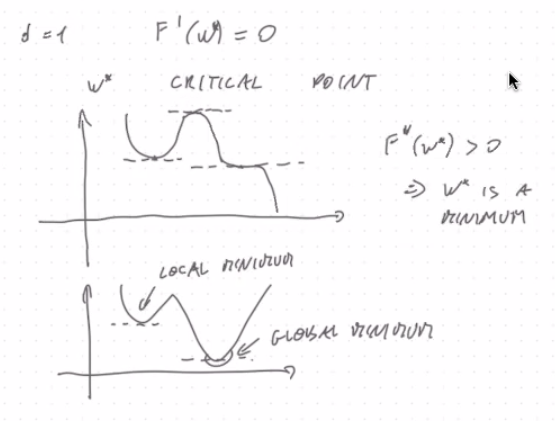 d = 1 F'(w*) = 0
w* CRITICAL POINT
F''(w*) > 0
⇒ w* IS A
MINIMUM
LOCAL MINIMUM
GLOBAL MINIMUM